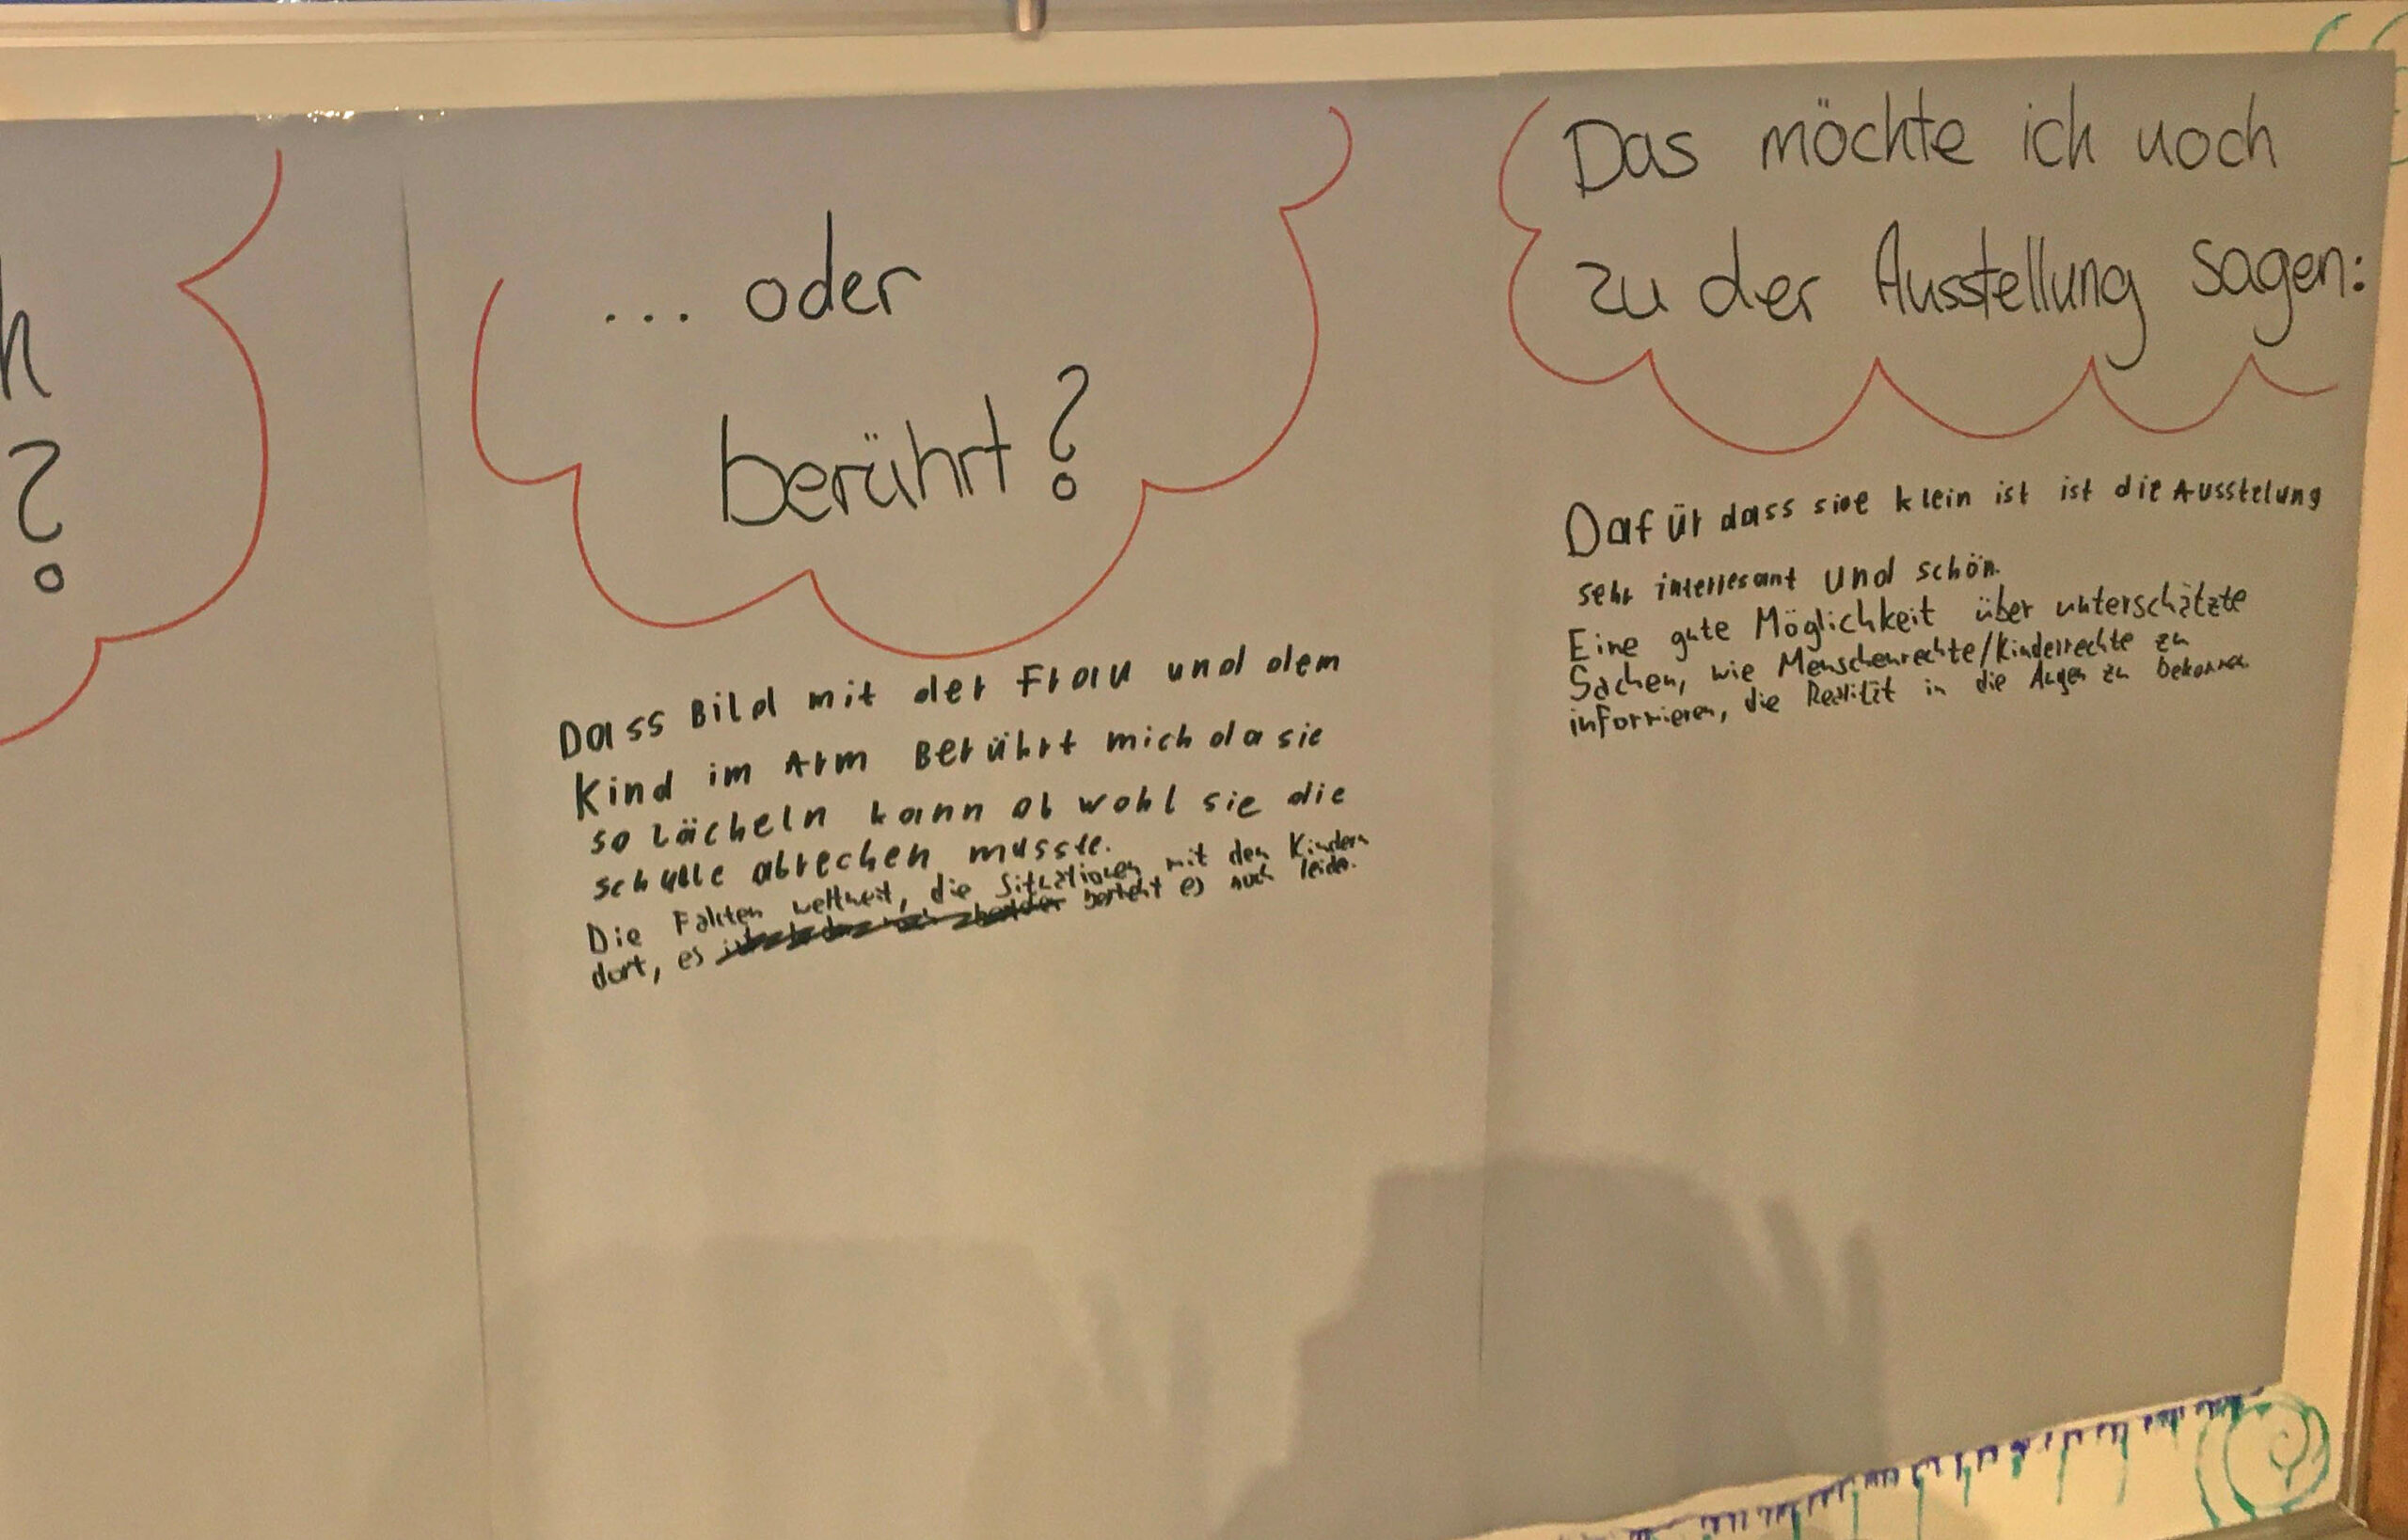 h
?
... oder
berührt?
Dass Bild mit der Frau und dem
Kind im Arm Berührt mich da sie
so Lächeln kann ob wohl sie die
schulle abrechen musste.
Die Fakten weltweit, die Situationen mit den Kindern
dort, es besteht es auch leider.
Das möchte ich noch
zu der Ausstellung sagen:
Dafür dass sie klein ist ist die Ausstelung
sehr interresant und schön.
Eine gute Möglichkeit über unterschätzte
Sachen, wie Menschenrechte/Kinderrechte zu
informieren, die Realität in die Augen zu bekommen.